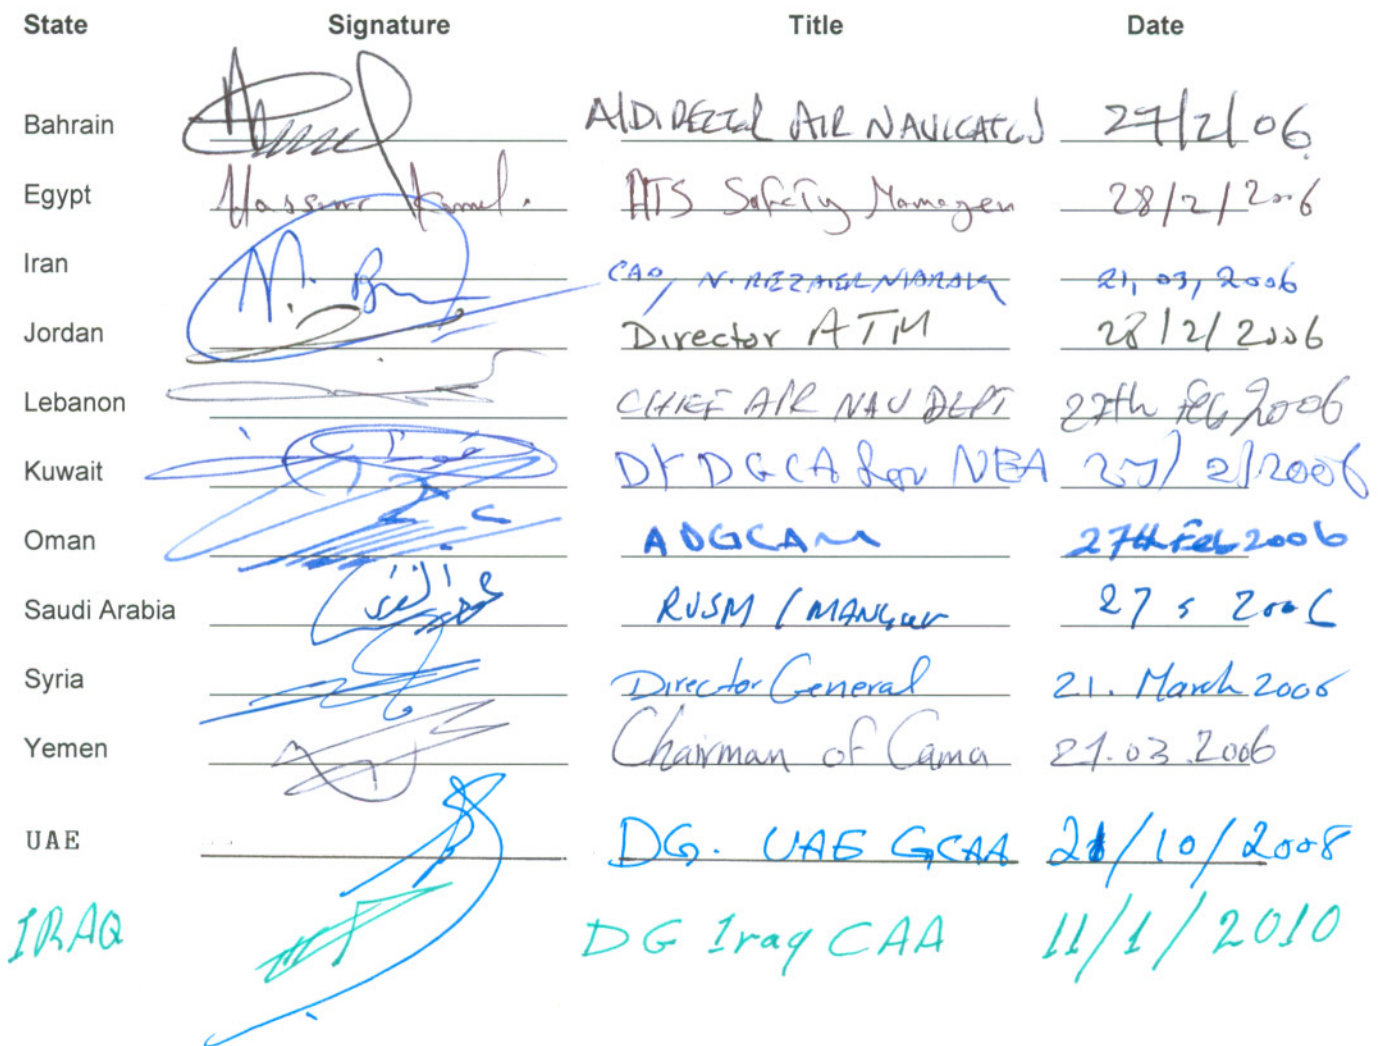 State Signature Title Date
Bahrain A/DIRECTOR AIR NAVIGATION 27/2/06
Egypt Hassan Kamel. ATS Safety Manager 28/2/2006
Iran CAO, 21, 03, 2006
Jordan Director ATM 28/2/2006
Lebanon CHIEF AIR NAV DEPT 27th Feb 2006
Kuwait DGCA for 27/2/2006
Oman ADGCAM 27th Feb 2006
Saudi Arabia RVSM / 27 2006
Syria Director General 21. March 2006
Yemen Chairman of Cama 21.03.2006
UAE DG. UAE GCAA 21/10/2008
IRAQ DG Iraq CAA 11/1/2010